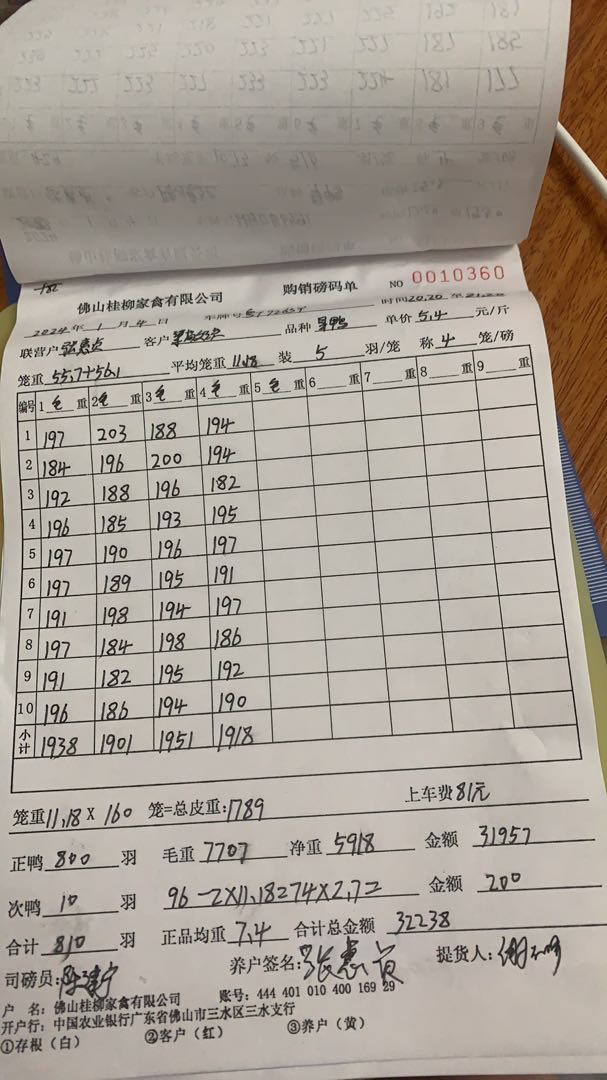 佛山桂柳家禽有限公司 购销磅码单 NO 0010360
2024年1月4日 车牌号 时间20.20
联营户 张惠贞 客户 品种 单价 5.4 元/斤
笼重 55.7+56.1 平均笼重 11.18 装 5 羽/笼 称 4 笼/磅
编号 1 毛 重 2 毛 重 3 毛 重 4 毛 重 5 毛 重 6 重 7 重 8 重 9 重
1 197 203 188 194
2 184 196 200 194
3 192 188 196 182
4 196 185 193 195
5 197 190 196 197
6 197 189 195 191
7 191 198 194 197
8 197 184 198 186
9 191 182 195 192
10 196 186 194 190
小计 1938 1901 1951 1918
上车费 81元
笼重 11.18 X 160 笼=总皮重: 1789
正鸭 800 羽 毛重 7707 净重 5918 金额 31957
次鸭 10 羽 96-2X11.18=74X2.7= 金额 200
合计 810 羽 正品均重 7.4 合计总金额 32238
司磅员: 养户签名: 张惠贞 提货人:
户 名: 佛山桂柳家禽有限公司 账号: 444 401 010 400 169 29
开户行: 中国农业银行广东省佛山市三水区三水支行
①存根(白) ②客户(红) ③养户(黄)